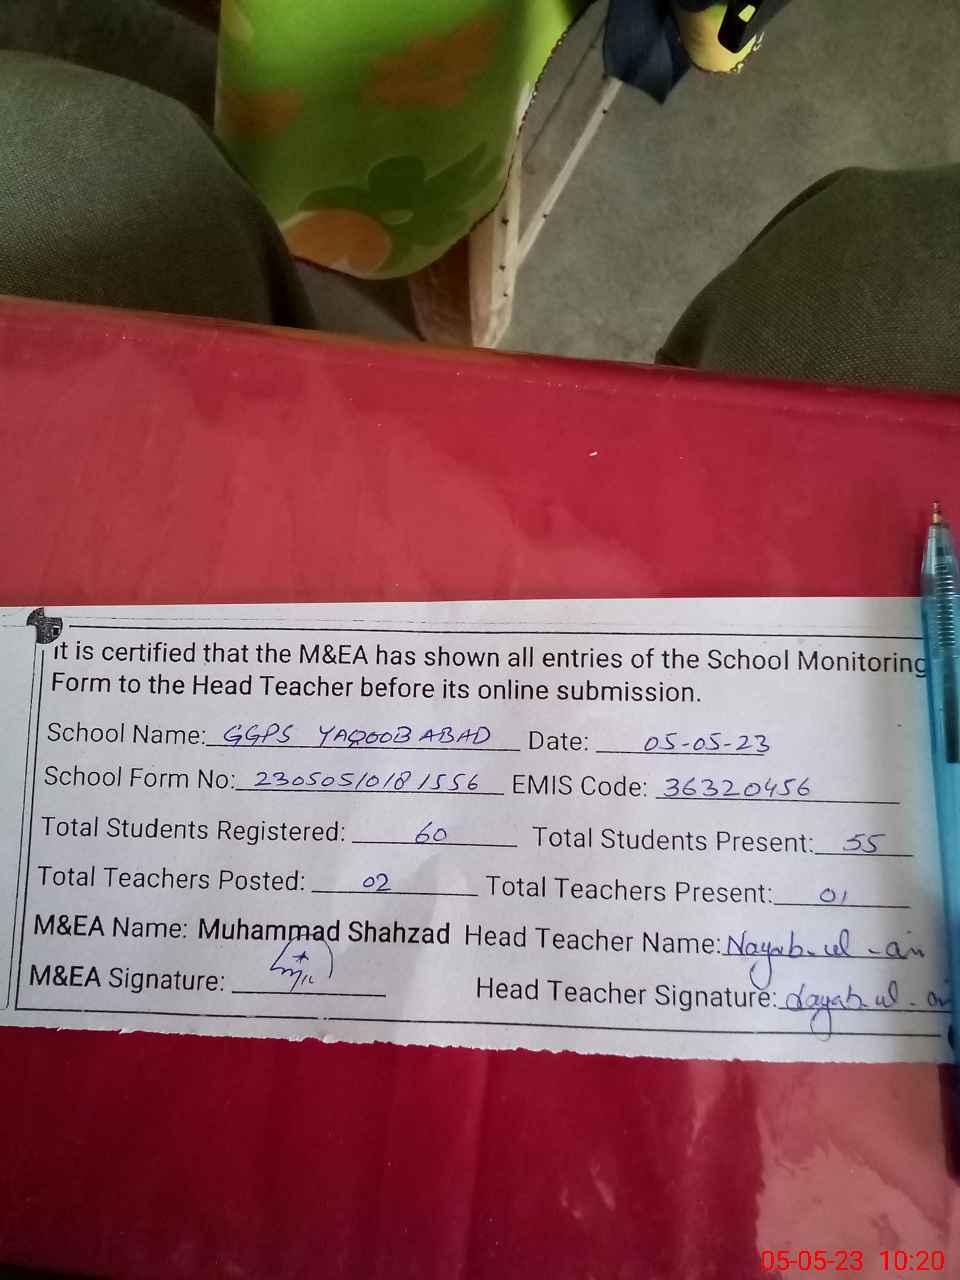 It is certified that the M&EA has shown all entries of the School Monitoring
Form to the Head Teacher before its online submission.
School Name: GGPS YAQOOB ABAD Date: 05-05-23
School Form No: 2305051018 1556 EMIS Code: 36320456
Total Students Registered: 60 Total Students Present: 55
Total Teachers Posted: 02 Total Teachers Present: 01
M&EA Name: Muhammad Shahzad Head Teacher Name: Nayab-ul-ain
M&EA Signature: Head Teacher Signature: Nayab-ul-ain
05-05-23 10:20